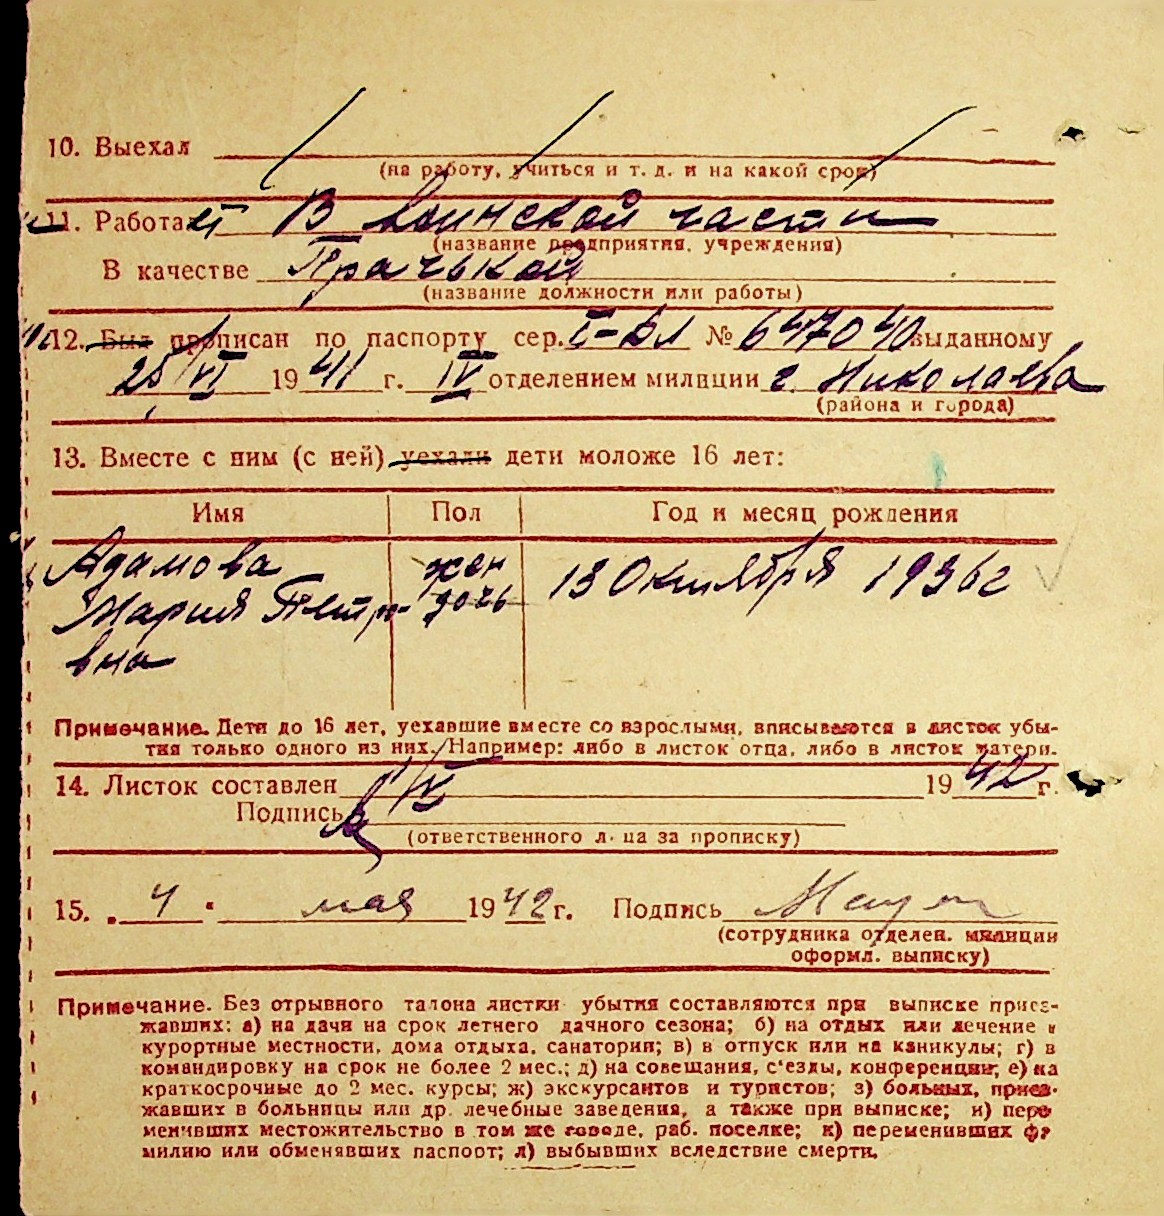 10. Выехал
(на работу, учиться и т. д. и на какой срок)
11. Работает В воинской части
(название предприятия, учреждения)
В качестве Прачькой
(название должности или работы)
12. Был прописан по паспорту сер. № 647040 выданному
VI 1941 г. IV отделением милиции г. Николаева
(района и города)
13. Вместе с ним (с ней) уехали дети моложе 16 лет:
Имя Пол Год и месяц рождения
Адамова жен 13 Октября 1936 г
Мария Петро- дочь
вна
Примечание. Дети до 16 лет, уехавшие вместе со взрослыми, вписываются в листок убы-
тия только одного из них. Например: либо в листок отца, либо в листок матери.
14. Листок составлен IV 1942 г.
Подпись
(ответственного лица за прописку)
15. „4" мая 1942 г. Подпись
(сотрудника отделен. милиции
оформл. выписку)
Примечание. Без отрывного талона листки убытия составляются при выписке приез-
жавших: а) на дачи на срок летнего дачного сезона; б) на отдых или лечение в
курортные местности, дома отдыха, санатории; в) в отпуск или на каникулы; г) в
командировку на срок не более 2 мес.; д) на совещания, с'езды, конференции; е) на
краткосрочные до 2 мес. курсы; ж) экскурсантов и туристов; з) больных, приез-
жавших в больницы или др. лечебные заведения, а также при выписке; и) пере
менивших местожительство в том же городе, раб. поселке; к) переменивших фа
милию или обменявших паспорт; л) выбывших вследствие смерти.